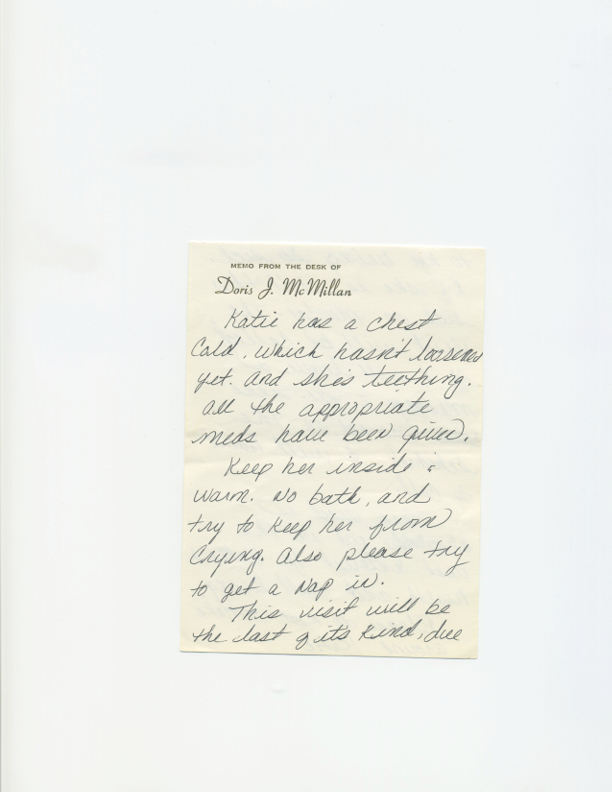 MEMO FROM THE DESK OF
Doris J. McMillan
Katie has a chest
Cold, which hasn't loosened
yet. and she's teething.
all the appropriate
meds have been given.
Keep her inside &
warm. No bath, and
try to keep her from
Crying. Also please try
to get a nap in.
This visit will be
the last of its kind, due